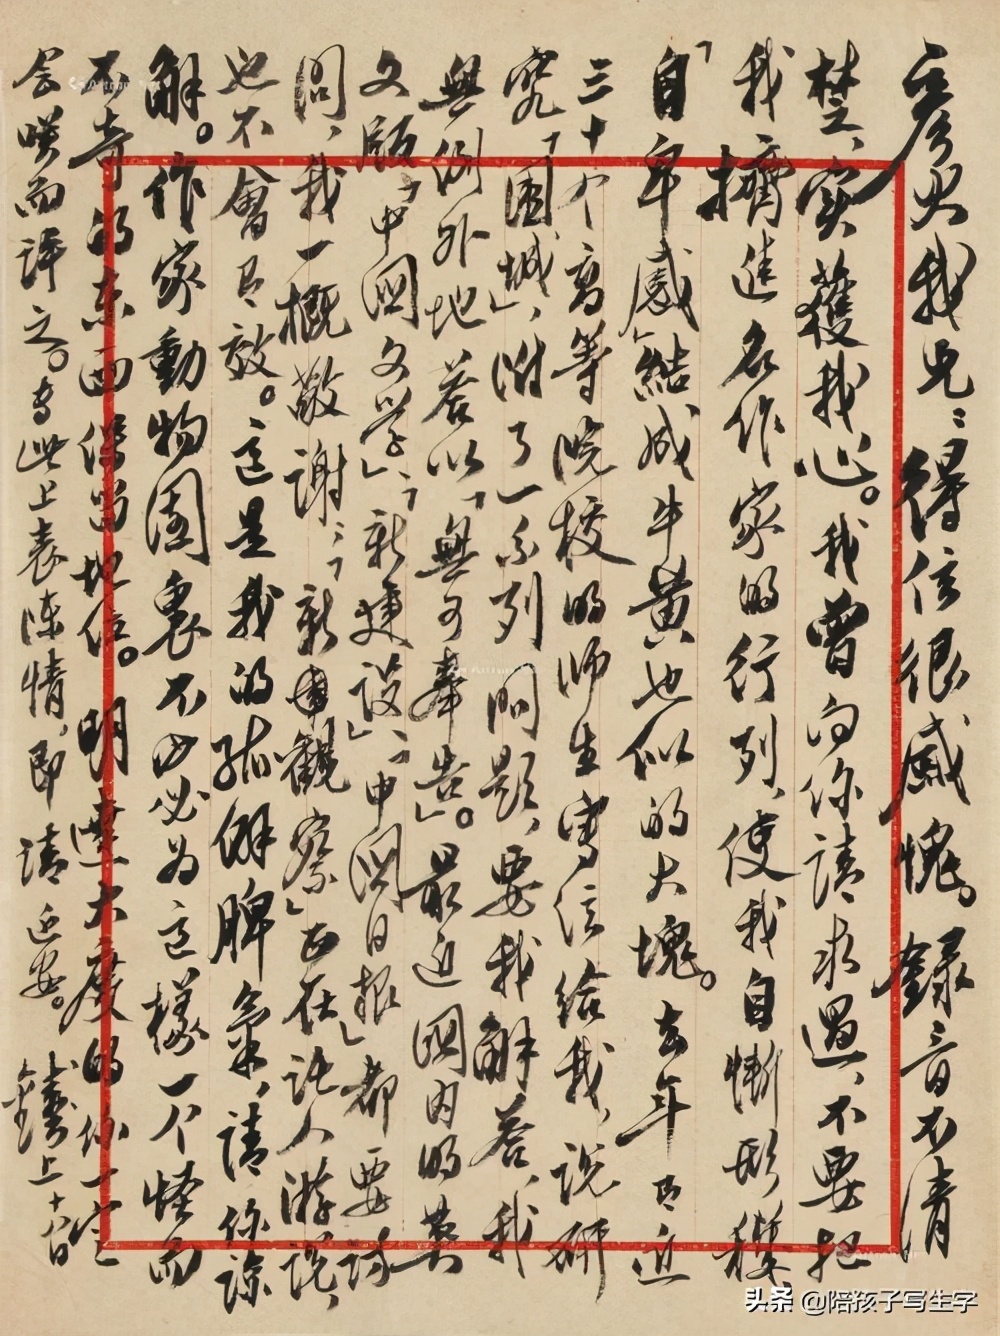 彦火我兄：得信很感愧。錄音不清
楚、实獲我心。我曾向你請求過、不要把
我擠进名作家的行列、使我自慚形穢、
「自卑感」結成牛黄也似的大塊。去年有近
三十个高等院校的师生写信给我，说研
究「围城」、附了一系列問題、要我解答、我
無例外地答以「無可奉告」。最近国内的英
文版「中国文学」、「新建设」、「中国日报」都要访
問、我一概敬谢；「新觀察」正在托人游说，
也不會有效。这是我的孤僻脾氣，請你諒
解。作家動物園裏不必为这樣一个怪而
不奇的东西保留地位。明達大度的你一定
会哂而谅之。专此上表陈情，即請 近安。
钱鍾書上 十八日
头条 @陪孩子写生字